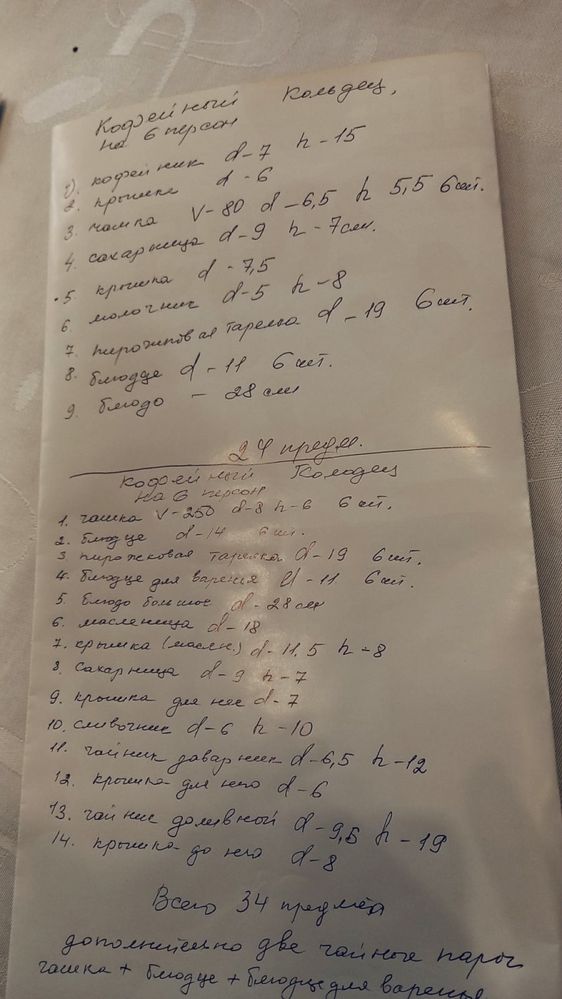 Кофейный Кольдец,
на 6 персон
1. кофейник d-7 h-15
2. крышка d-6
3. чашка V-80 d-6,5 h 5,5 6шт.
4. сахарница d-9 h-7см.
5. крышка d-7,5
6. молочник d-5 h-8
7. пирожковая тарелка d-19 6шт.
8. блюдце d-11 6шт.
9. блюдо - 28см
24 предм.
Кофейный Колодец
на 6 персон
1. чашка V-250 d-8 h-6 6шт.
2. блюдце d-14 6шт.
3. пирожковая тарелка d-19 6шт.
4. блюдце для варенья d-11 6шт.
5. блюдо большое d-28см
6. масленица d-18
7. крышка (маслен.) d-11,5 h-8
8. сахарница d-9 h-7
9. крышка для нее d-7
10. сливочник d-6 h-10
11. чайник заварник d-6,5 h-12
12. крышка для него d-6
13. чайник доливной d-9,5 h-19
14. крышка до него d-8
Всего 34 предмета
дополнительно две чайные пары
чашка + блюдце + блюдце для варенья